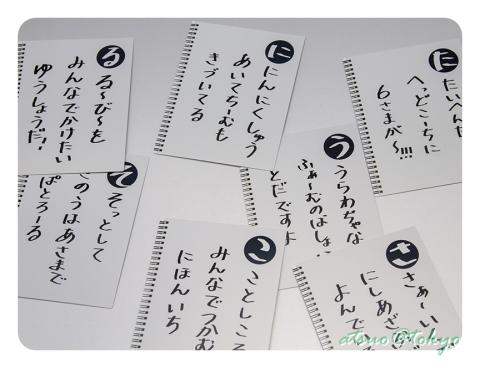 る
る〜び〜も
みんなでかけたい
ゆうしょうだ!
に
にんにくしゅう
あいてちーむも
きづいてる
た
たいへんだ
へっどこーちに
6さまが〜!!!
そっとして
きのうはあさまで
ぱとろーる
う
うらわちゃな
ふぁーむのばしょ
とだですよ
こ
ことしこそ
みんなでつかむ
にほんいち
さ
さぁーい
にしめざ
よんで
atsuo@tokyo